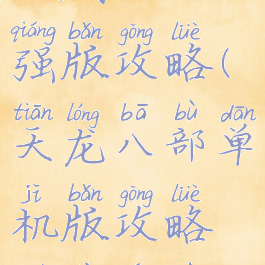 qiáng bǎn gōng lüè
强版攻略(
tiān lóng bā bù dān
天龙八部单
jī bǎn gōng lüè
机版攻略